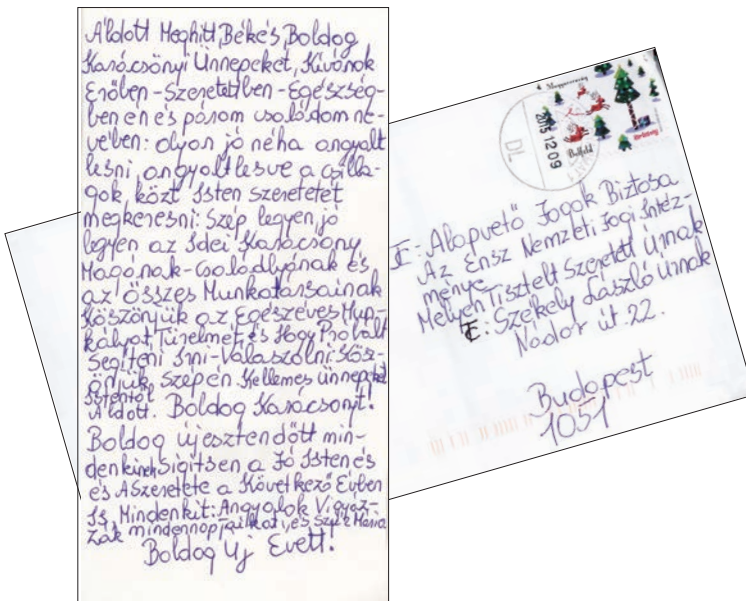 Áldott Meghitt, Békés, Boldog
Karácsonyi Ünnepeket, Kívánok
Erőben-Szeretetben-Egészség-
ben én és párom családom ne-
vében: olyan jó néha angyalt
lesni, angyaltlesve a csilla-
gok közt Isten szeretetét
megkeresni: Szép legyen, jó
legyen az Idei Karácsony
Magának-Családjának és
az Összes Munkatársainak
Köszönjük az Egészéves Mun-
kályát, Türelmét, és Hogy Próbált
Segíteni Írni-Válaszolni Kösz-
önjük szépen Kellemes ünnepeket
Istentől
Áldott. Boldog Karácsonyt!
Boldog újesztendőtt min-
denkinek Sigítsen a Jó Isten és
és ASzeretete a Következő Évben
Is, Mindenkit: Angyalok Vigyáz-
zák mindennapjaikat, és Szűz Mária
Boldog Uj Évett!
Magyarország
2015 12 09
Belföld
I: Alapvető Jogok Biztosa
Az Ensz Nemzeti Jogi Intéz-
ménye
Mélyen Tisztelt Szeretett Úrnak
I: Székely László Úrnak
Nádor út. 22.
Budapest
1051